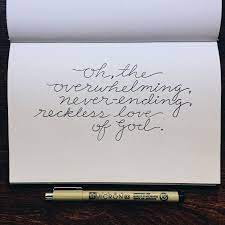 Oh, the
overwhelming,
never-ending,
reckless love
of God.
MICRON